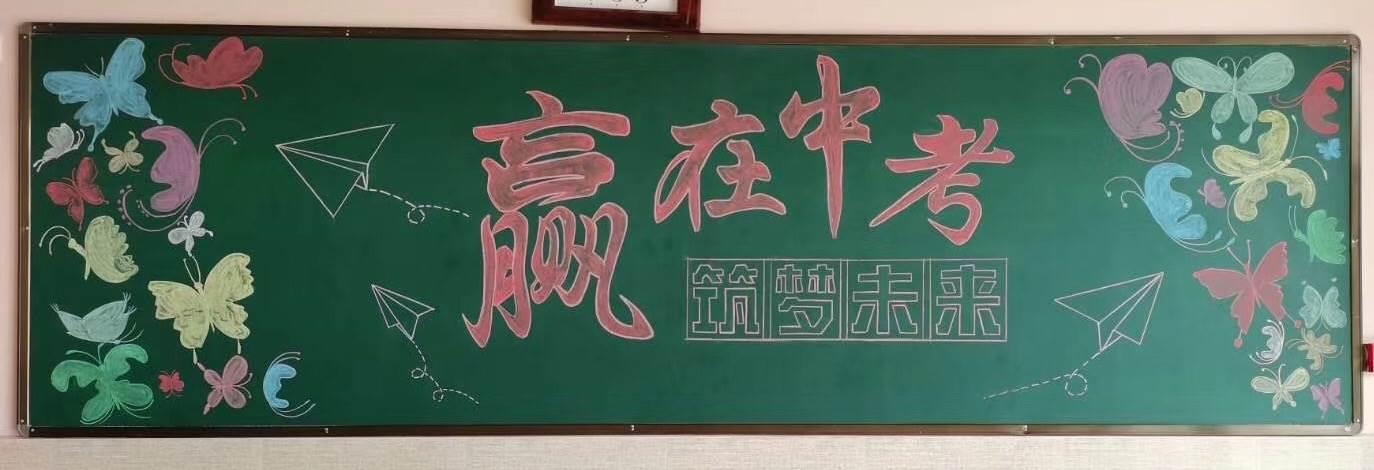 赢在中考
筑梦未来